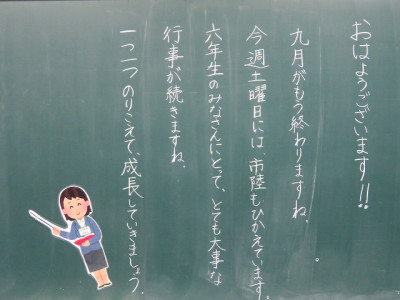 おはようございます!!
九月がもう終わりますね。
今週土曜日には、市陸もひかえています。
六年生のみなさんにとって、とても大事な
行事が続きますね。
一つ一つのりこえて、成長していきましょう。